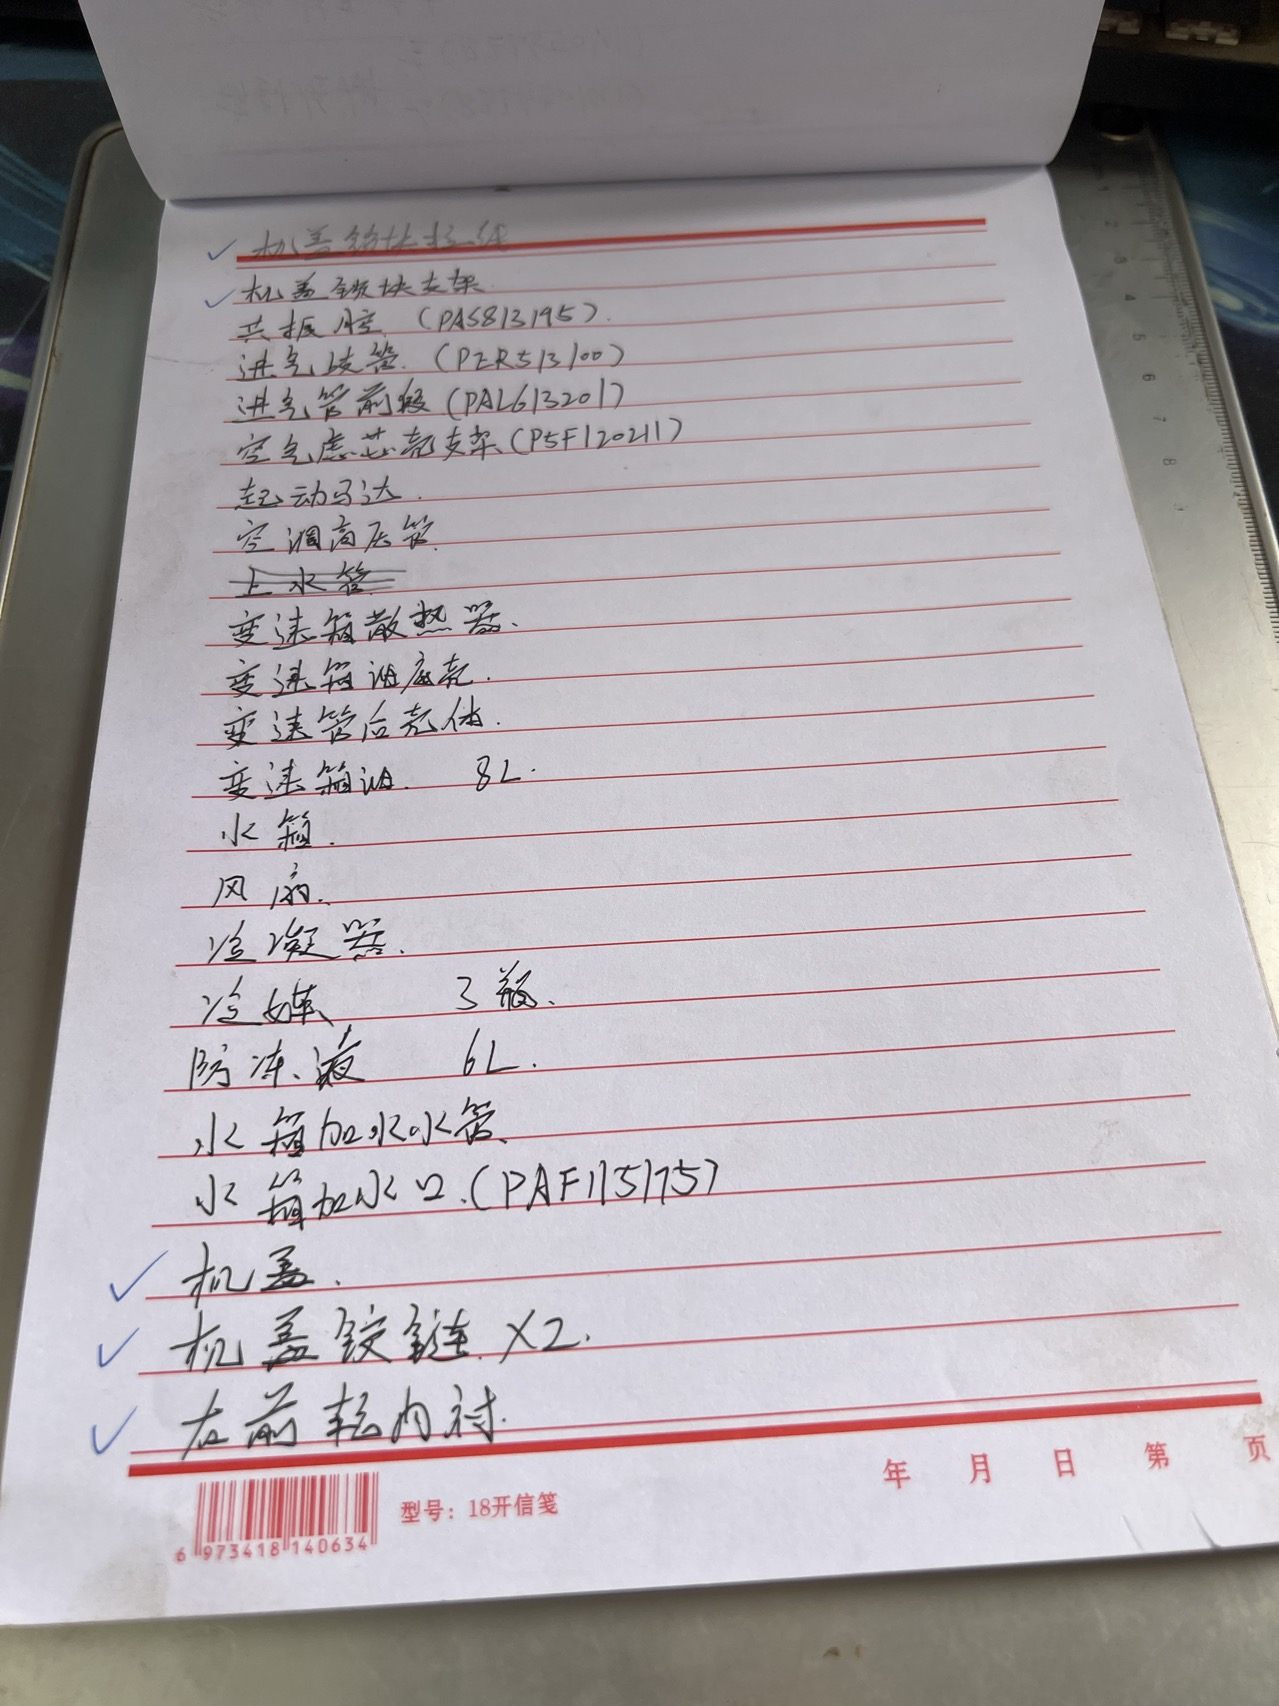 ✓ 机盖锁块拉线
✓ 机盖锁块支架
共振腔 (PA5813195).
进气歧管. (PER513100)
进气管前段 (PAL613201)
空气虑芯壳支架 (P5F120211)
起动马达.
空调高压管
上水管
变速箱散热器.
变速箱油底壳.
变速管后壳体.
变速箱油. 8L.
水箱.
风扇.
冷凝器.
冷媒 3瓶.
防冻液 6L.
水箱加水水管
水箱加水口. (PAF115175)
✓ 机盖.
✓ 机盖铰链. X2.
✓ 右前轮内衬.
年 月 日 第 页
型号：18开信笺
6 973418 140634